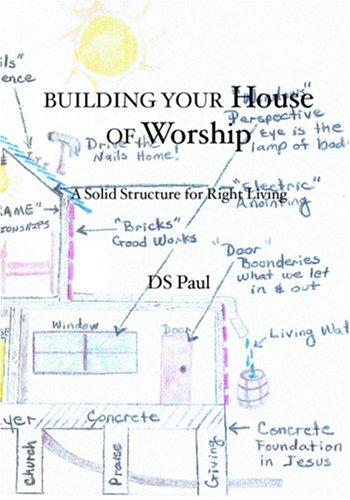 ils"
ence
BUILDING YOUR House
OF Worship
Perspective
Eye is the
lamp of bod
Drive the
Nails Home!
"Electric"
Anointing
A Solid Structure for Right Living
AME"
IONSHIPS
"Bricks"
Good Works
"Door"
Bounderies
what we let
in & out
DS Paul
Window
Door
Living Wat
yer
Concrete
Concrete
Foundation
in Jesus
Church
Praise
Giving